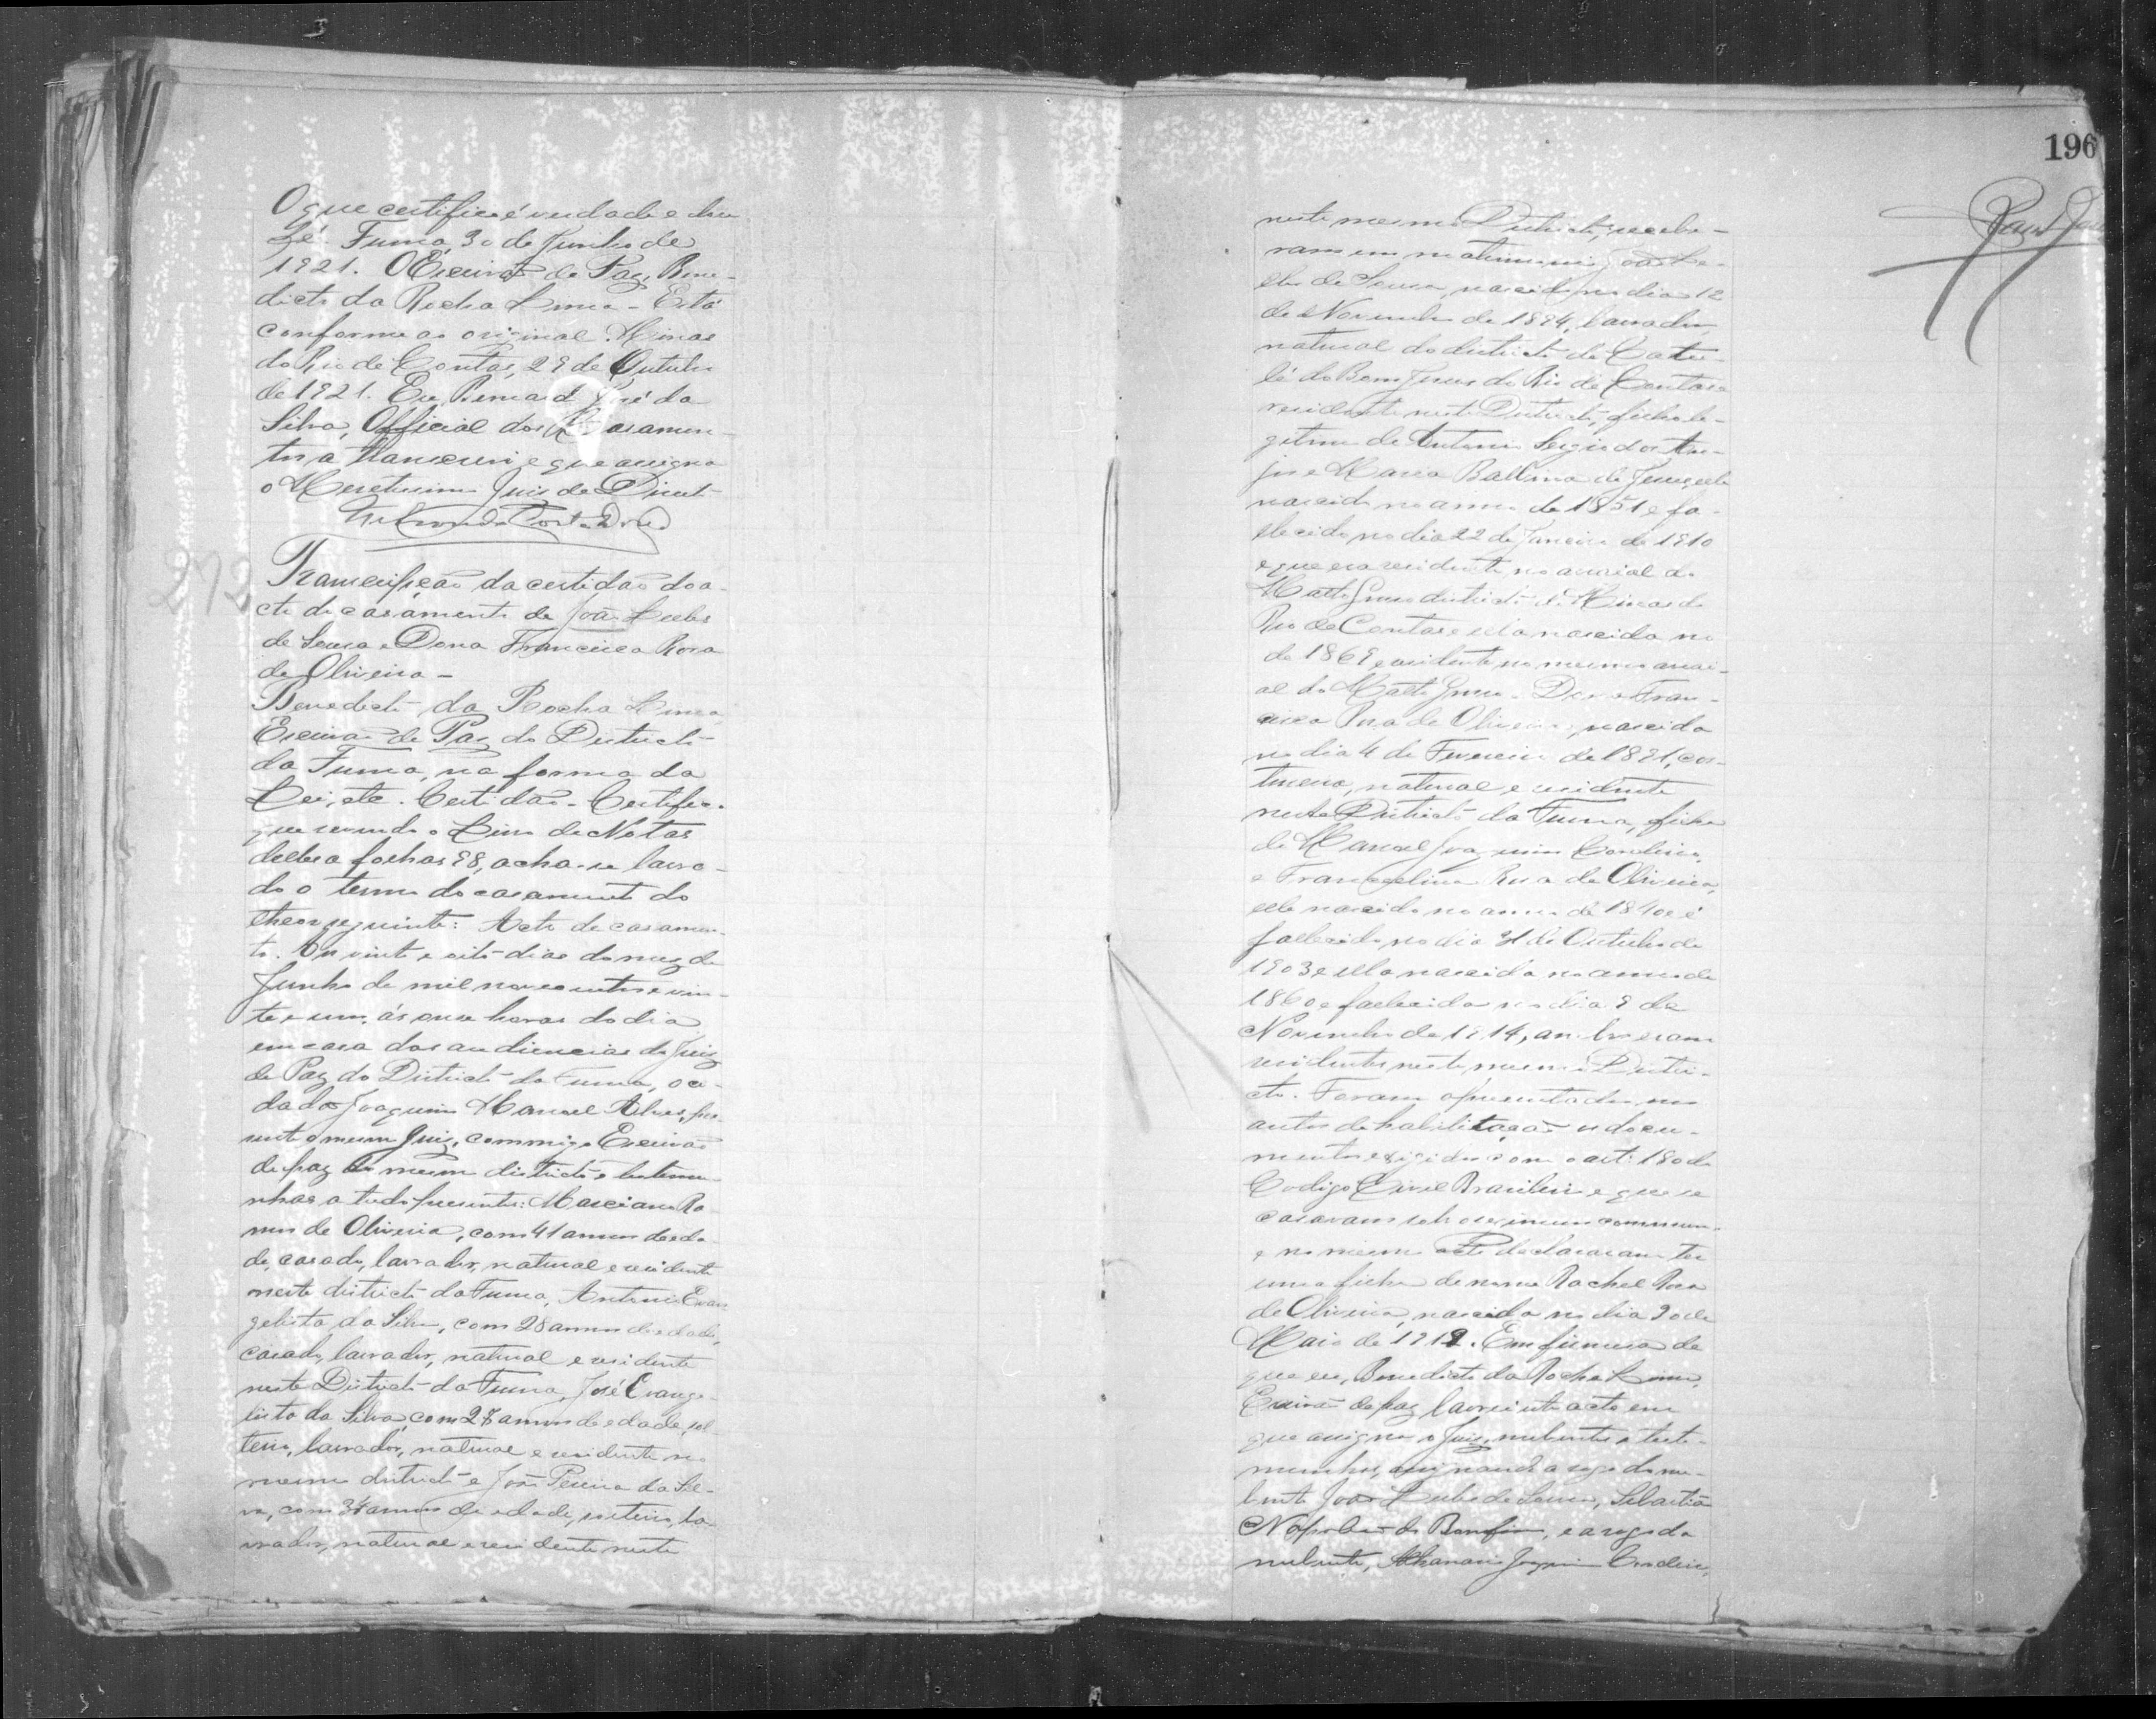 O que certifico é verdade e dou
fé. Furna, 30 de Junho de
1921. O Escrivão de Paz, Bene-
dicto da Rocha Lima - Está
conforme ao original. Minas
do Rio de Contas, 29 de Outubro
de 1921. Eu, Bernard José da
Silva, Official dos Casamen-
tos a transcrevi e que assigna
o Meretissimo Juiz de Direito
272
Transcripção da certidão do a-
cto de casamento de João
de Souza e Dona Francisca Rosa
de Oliveira -
Benedicto da Rocha Lima,
Escrivão de Paz do Districto
da Furna, na forma da
Lei, etc. Certidão - Certifico
que revendo o Livro de Notas
delle a folhas 98, acha-se lavra-
do o termo do casamento do
theor seguinte: Acto de casamen-
to. Aos vinte e oito dias do mez de
Junho de mil novecentos e vin-
te e um, ás onze horas do dia
em casa das audiencias do Juiz
de Paz do Districto da Furna, o ci-
dadão Joaquim Manoel Alves, pre-
sente o mesmo Juiz, commigo Escrivão
de paz do mesmo districto e testemu-
nhas a tudo presentes: Marciano Ra-
mos de Oliveira, com 41 annos de eda-
de, casado, lavrador, natural e residente
neste districto da Furna, Antonio Evan-
gelista da Silva, com 28 annos de edade,
casado, lavrador, natural e residente
neste Districto da Furna, José Evange-
lista da Silva, com 27 annos de edade, sol-
teiro, lavrador, natural e residente no
mesmo districto e João Pereira da Sil-
va, com 34 annos de edade, solteiro, la-
vrador, natural e residente neste
196
neste mesmo Districto, recebe-
ram em matrimonio João
de Souza, nascido no dia 12
de Novembro de 1894, lavrador,
natural do districto de Catu-
lé do Bom Jesus do Rio de Contas e
residente neste Districto, filho le-
gitimo de Antonio Sergio dos An-
jos e Maria Balbina de Jesus, elle
nascido no anno de 1851 e fa-
llecido no dia 22 de Janeiro de 1910
e que era residente no arraial do
Matto Grosso districto de Minas do
Rio de Contas e ella nascida no
de 1869 e residente no mesmo arrai-
al do Matto Grosso. Dona Fran-
cisca Rosa de Oliveira, nascida
no dia 4 de Fevereiro de 1891, cos-
tureira, natural e residente
neste Districto da Furna, filha
de Manoel Joaquim Cordeiro,
e Francelina Rosa de Oliveira,
elle nascido no anno de 1840 e é
fallecido no dia 31 de Outubro de
1903 e ella nascida no anno de
1860 e fallecida no dia 9 de
Novembro de 1914, ambos eram
residentes neste mesmo Distri-
cto. Foram apresentados nos
autos de habilitação os docu-
mentos exigidos com o art. 180 do
Codigo Civil Brasileiro e que se
casaram sob o regimen commum
e no mesmo acto declararam ter
uma filha de nome Rachel Rosa
de Oliveira, nascida no dia 30 de
Maio de 1919. Em firmeza de
que eu, Benedicto da Rocha Lima,
Escrivão de paz lavrei este acto em
que assigna o Juiz, nubentes e teste-
munhas, assignando a rogo do nu-
bente João de Souza, Sebastião
Napoleão do Bomfim, e a rogo da
nubente, Athanasio Joaquim Cordeiro,